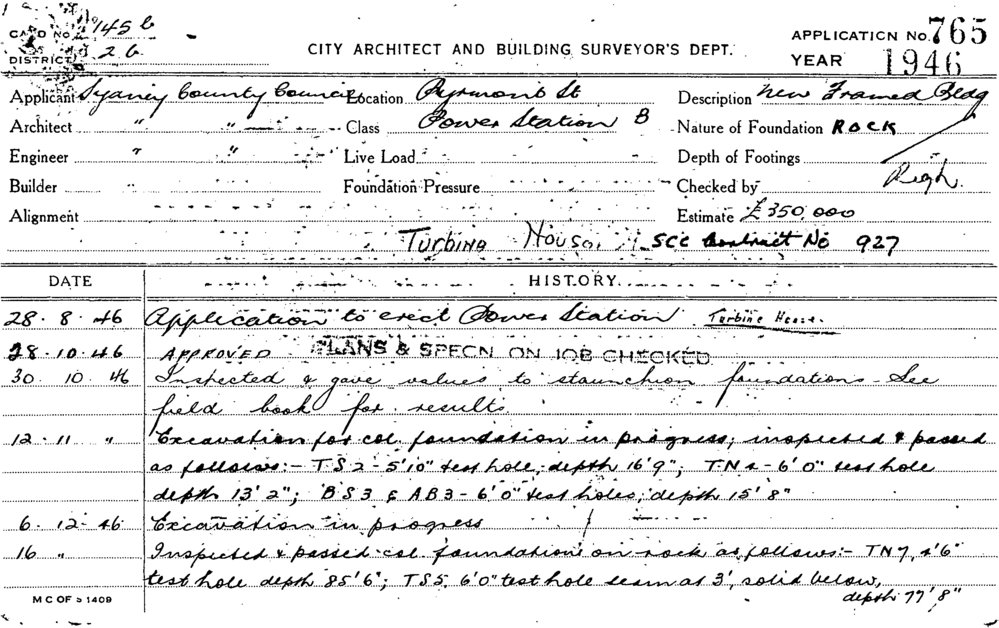 CARD No. 145 b
DISTRICT 26
CITY ARCHITECT AND BUILDING SURVEYOR'S DEPT.
APPLICATION No. 765
YEAR 1946
Applicant Sydney County Council Location Pyrmont St Description New Framed Bldg
Architect " " Class Power Station B Nature of Foundation ROCK
Engineer " " Live Load Depth of Footings
Builder Foundation Pressure Checked by Pugh.
Alignment Estimate £350,000
Turbine House SCC Contract No 927
DATE HISTORY
28 . 8 . 46 Application to erect Power Station. Turbine House.
28 . 10 . 46 APPROVED PLANS & SPECN ON JOB CHECKED
30. 10. 46 Inspected & gave values to staunchion foundations - See
field book for results.
12 . 11 " Excavation for col. foundation in progress; inspected & passed
as follows:- TS2 - 5'10" test hole, depth 16'9"; TN4 - 6'0" test hole
depth 13'2"; BS3 & AB3 - 6'0" test holes; depth 15'8"
6. 12. 46 Excavation in progress
16 " Inspected & passed col. foundations on rock as follows:- TN7, 4'6"
test hole depth 85'6"; TS5, 6'0" test hole seam at 3', solid below,
depth 77'8"
M C OF S 1409